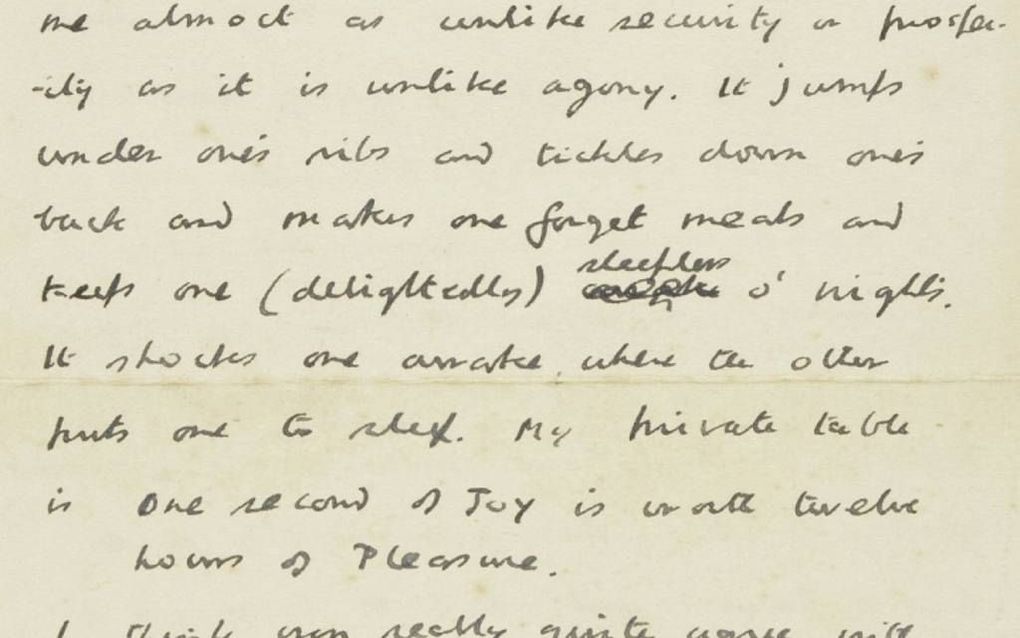 me almost as unlike security or prosper-
-ity as it is unlike agony. It jumps
under one's ribs and tickles down one's
back and makes one forget meals and
keeps one (delightedly) sleepless o' nights.
It shocks one awake where the other
puts one to sleep. My private table
is One second of Joy is worth twelve
hours of Pleasure.
I think you really quite agree with